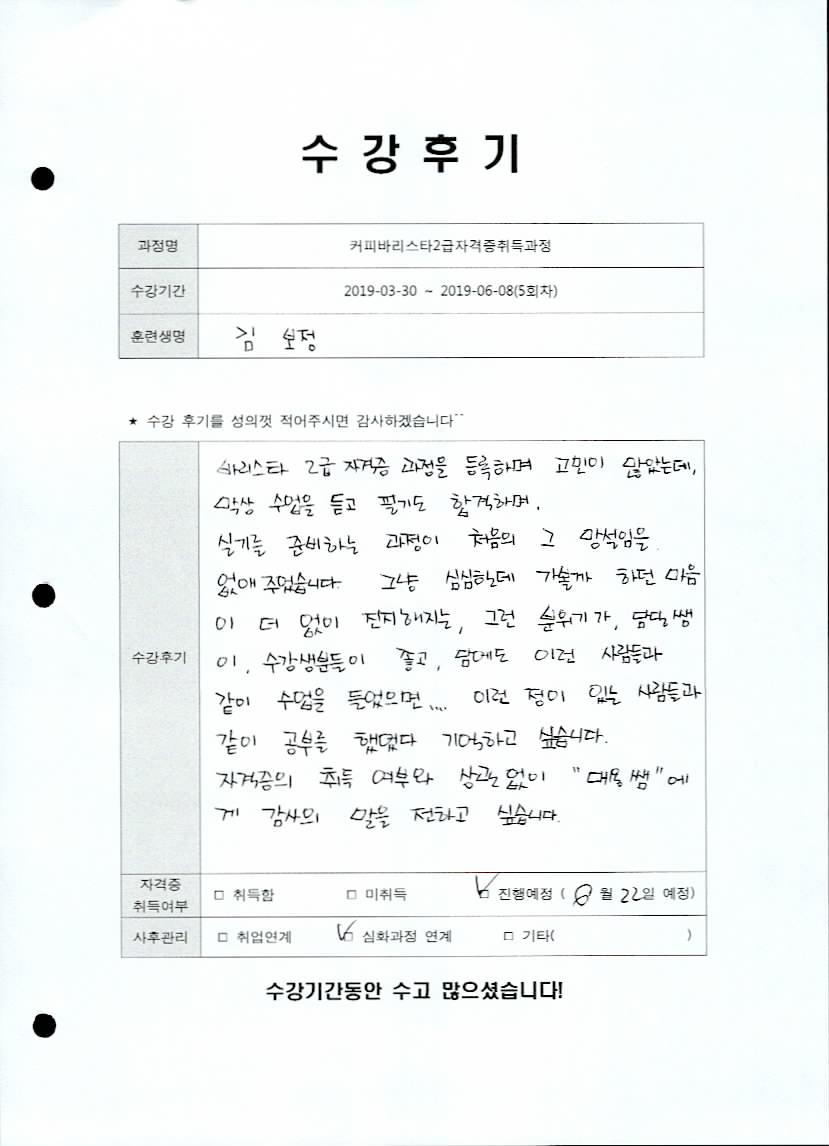 수 강 후 기
과정명 커피바리스타2급자격증취득과정
수강기간 2019-03-30 ~ 2019-06-08(5회차)
훈련생명 김 보정
★ 수강 후기를 성의껏 적어주시면 감사하겠습니다^^
수강후기
바리스타 2급 자격증 과정을 등록하며 고민이 많았는데,
막상 수업을 듣고 필기도 합격하며,
실기를 준비하는 과정이 처음의 그 망설임을
없애 주었습니다. 그냥 심심한데 가볼까 하던 마음
이 더 없이 진지해지는, 그런 분위기가, 담당쌤
이, 수강생분들이 좋고, 담에도 이런 사람들과
같이 수업을 들었으면.... 이런 정이 있는 사람들과
같이 공부를 했었다 기억하고 싶습니다.
자격증의 취득 여부와 상관 없이 "대웅쌤"에
게 감사의 말을 전하고 싶습니다.
자격증 취득여부 □ 취득함 □ 미취득 ☑ 진행예정 ( 월 22일 예정)
사후관리 □ 취업연계 ☑ 심화과정 연계 □ 기타( )
수강기간동안 수고 많으셨습니다!